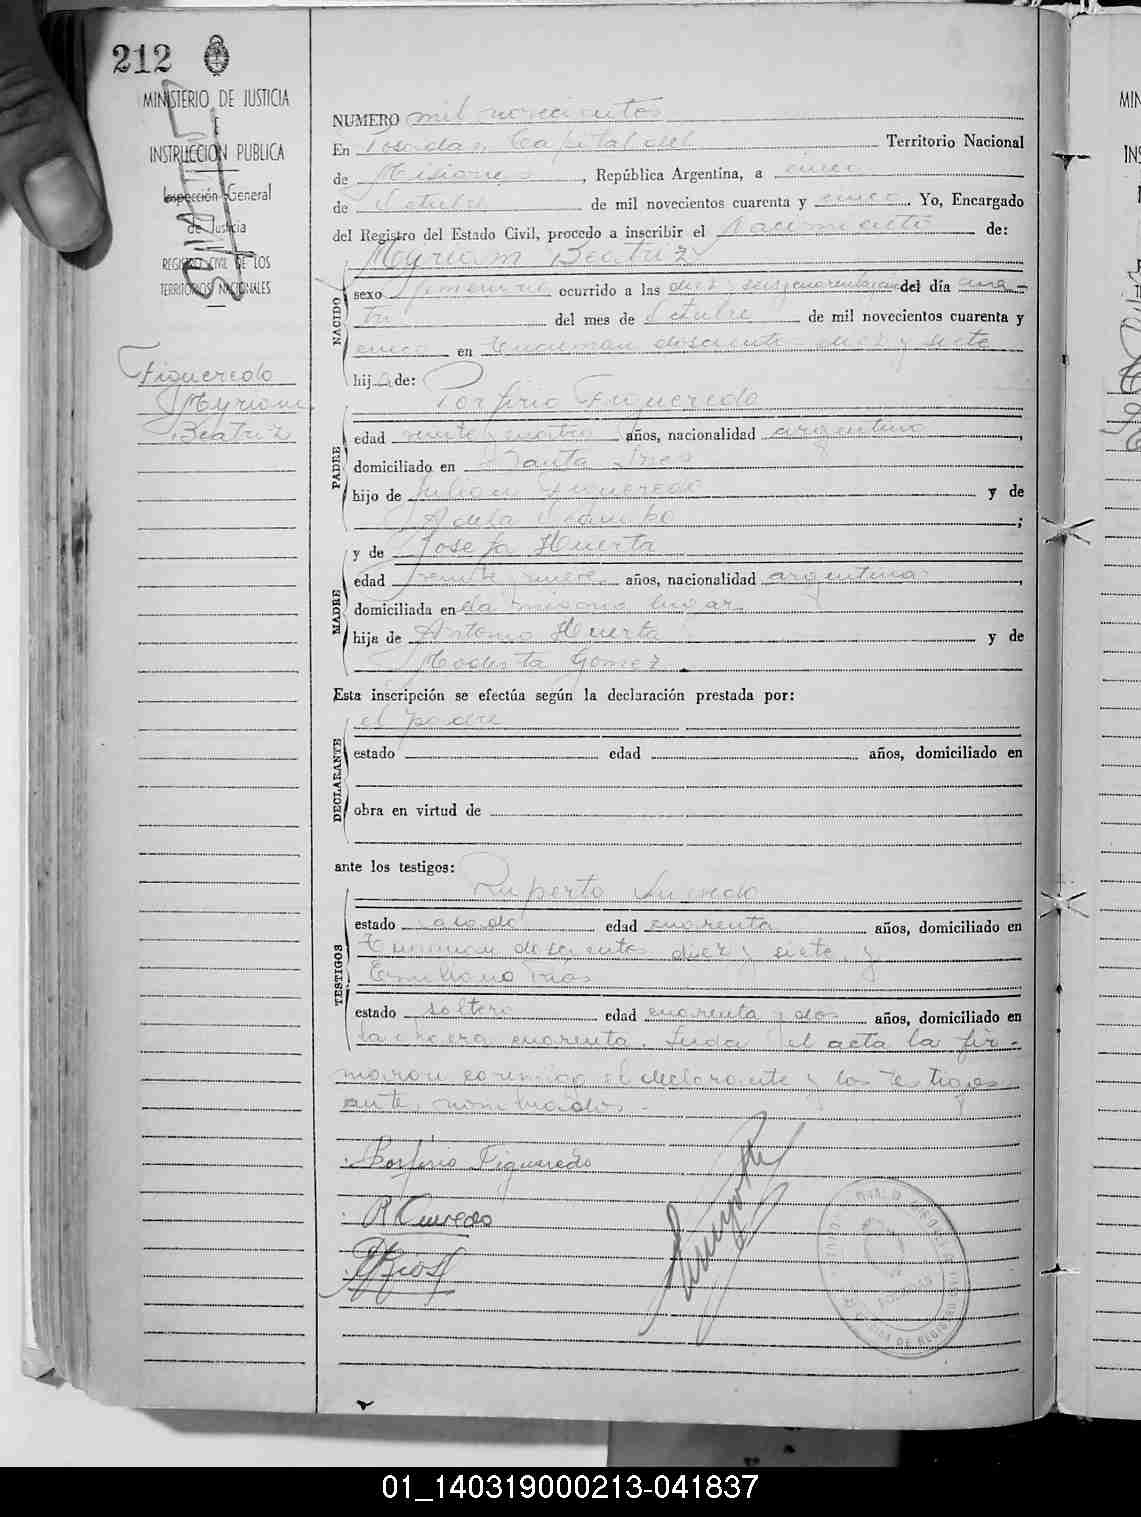 212
MINISTERIO DE JUSTICIA
E
INSTRUCCION PUBLICA
Inspección General
de Justicia
REGISTRO CIVIL DE LOS
TERRITORIOS NACIONALES
Figueredo
Myriam
Beatriz
NUMERO mil novecientos
En Posadas, Capital del Territorio Nacional
de Misiones, República Argentina, a cinco
de Octubre de mil novecientos cuarenta y cinco. Yo, Encargado
del Registro del Estado Civil, procedo a inscribir el Nacimiento de:
NACIDO
Myriam Beatriz
sexo femenino ocurrido a las diez y seis y cuarenta del día cua-
tro del mes de Octubre de mil novecientos cuarenta y
cinco en Tucuman doscientos diez y siete
hija de:
PADRE
Porfirio Figueredo
edad veinte y cuatro años, nacionalidad argentino,
domiciliado en Santa Ines
hijo de Julian Figueredo y de
Adela ;
MADRE
y de Josefa Huerta
edad veinte y nueve años, nacionalidad argentina,
domiciliada en el mismo lugar
hija de Antonio Huerta y de
Modesta Gomez.
Esta inscripción se efectúa según la declaración prestada por:
DECLARANTE
el padre
estado edad años, domiciliado en
obra en virtud de
ante los testigos:
TESTIGOS
Ruperto
estado casado edad cuarenta años, domiciliado en
Tucuman doscientos diez y siete, y
Emiliano Rios
estado soltero edad cuarenta y dos años, domiciliado en
la chacra cuarenta. Leida el acta la fir-
maron conmigo el declarante y los testigos
ante nombrados.-
Porfirio Figueredo
POSADAS
01_140319000213-041837